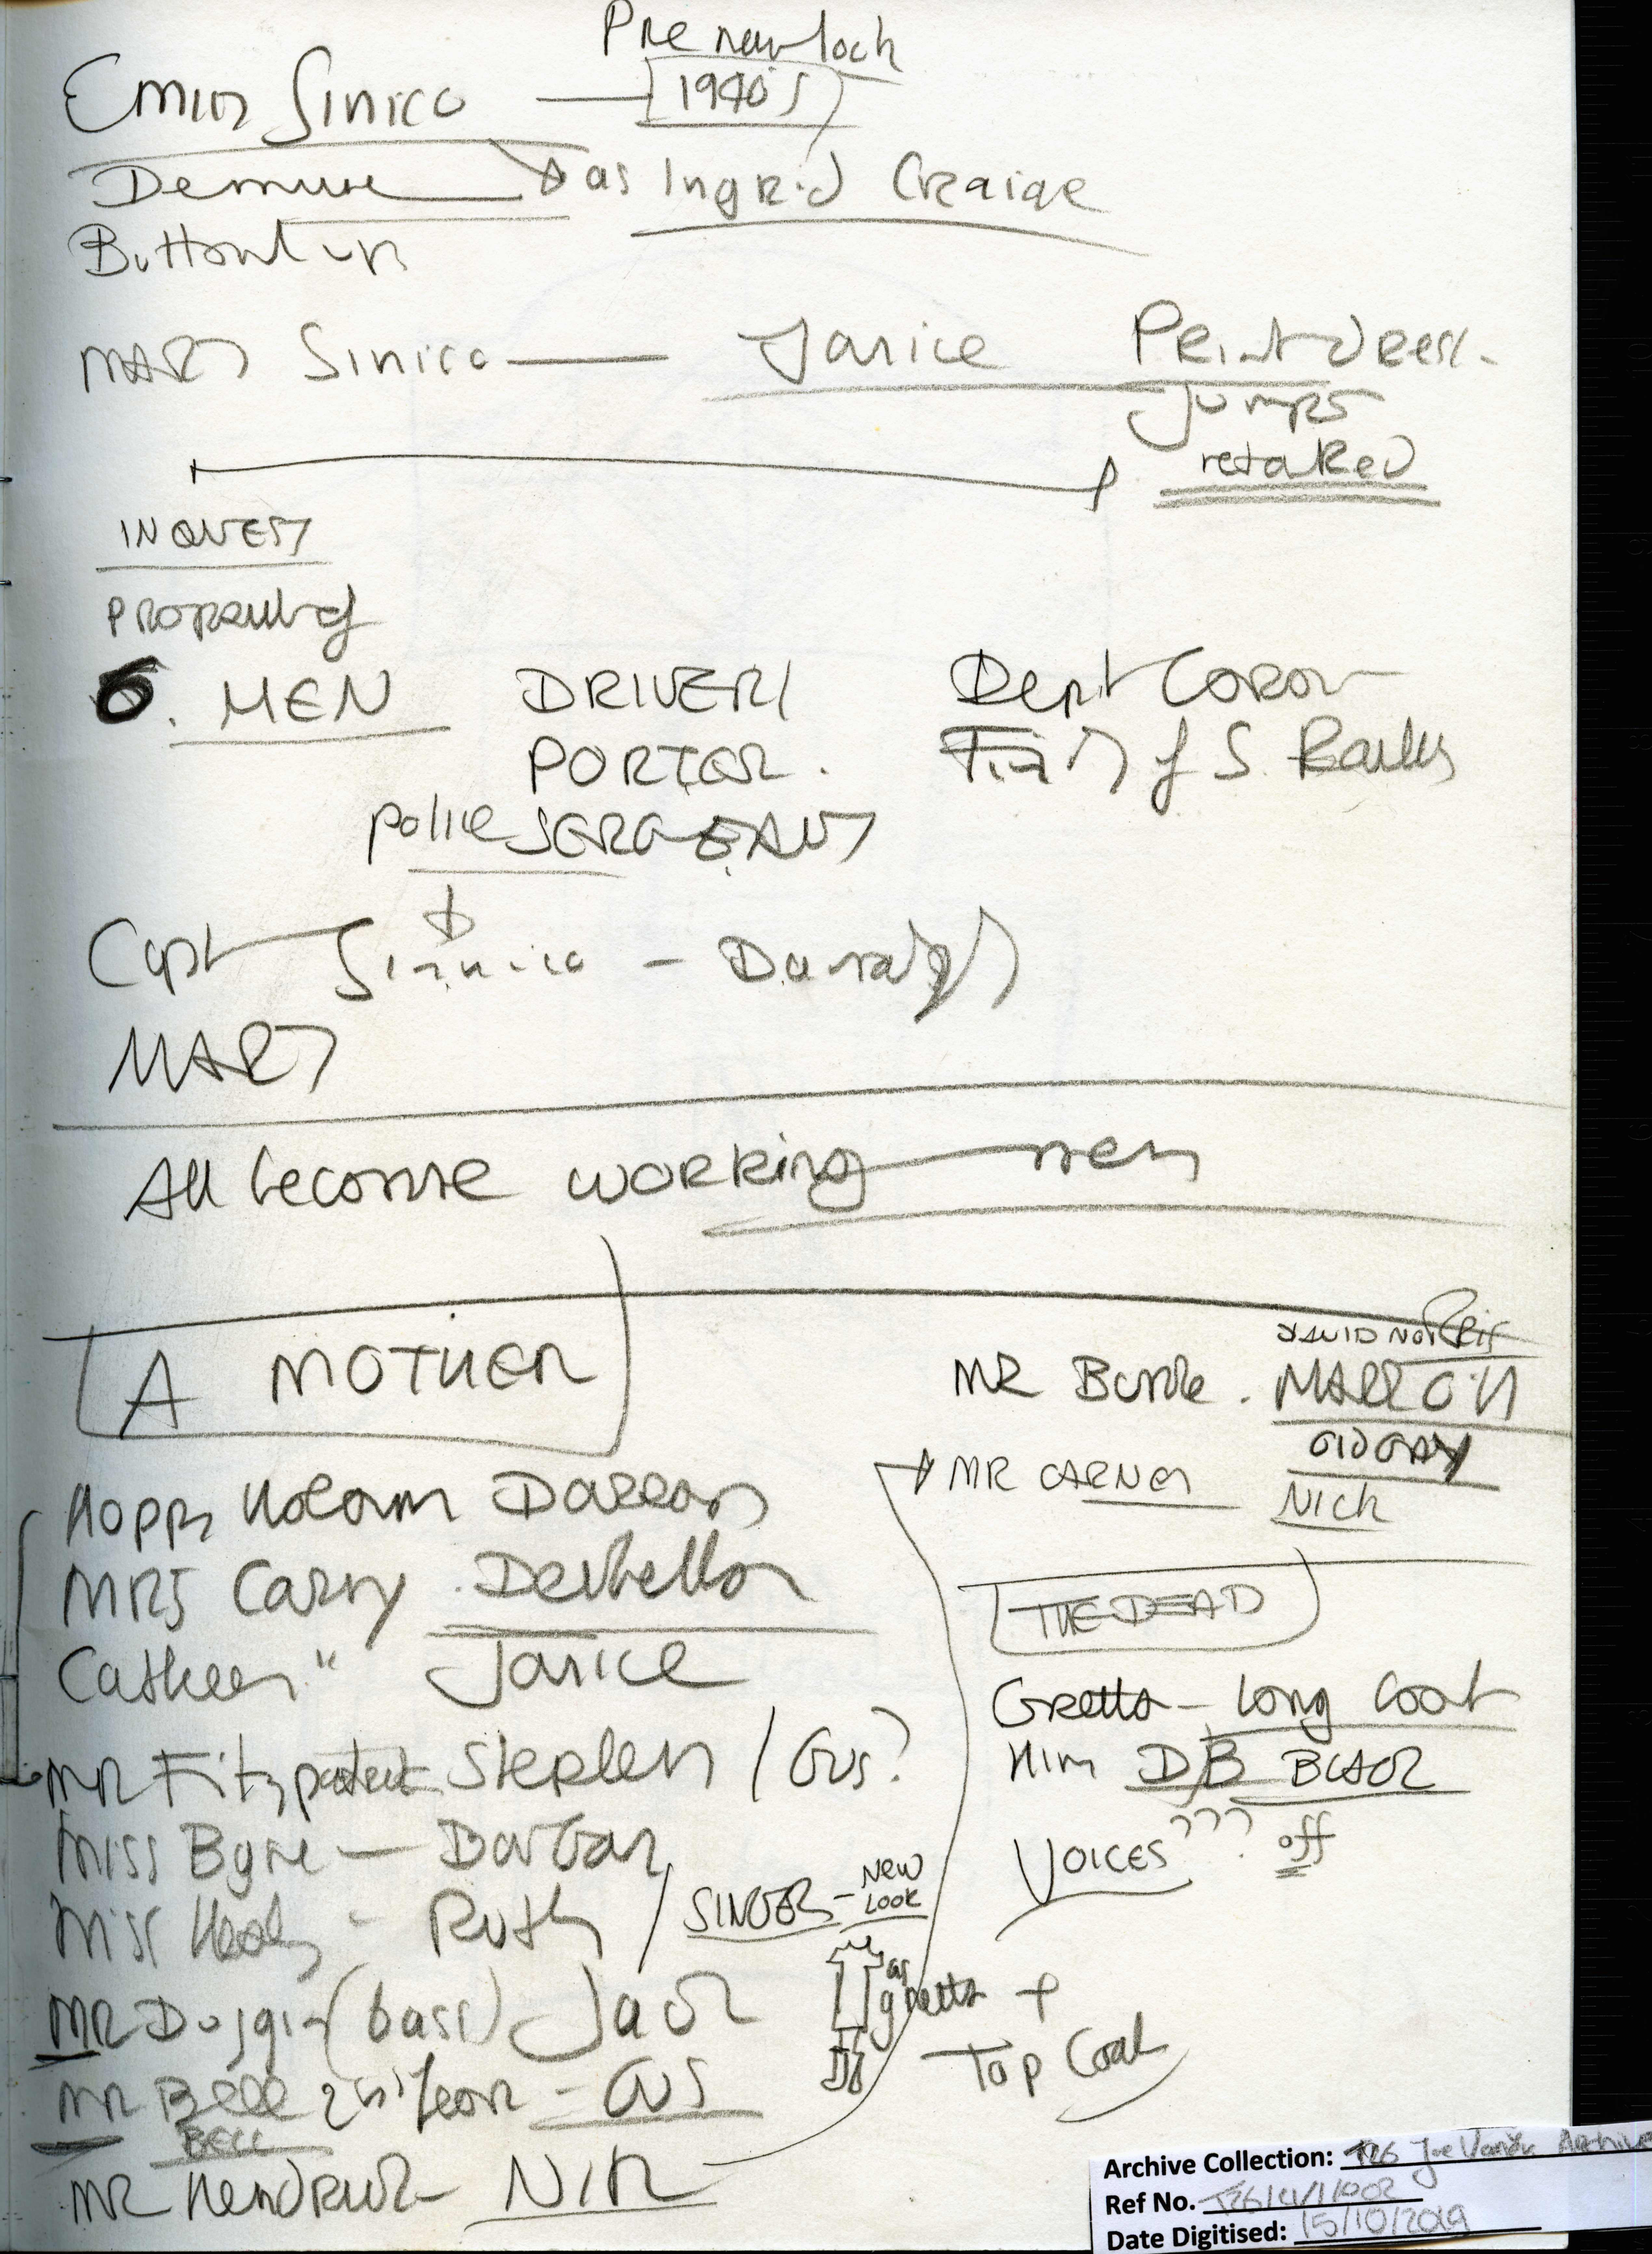 Pre new look
Emily Sinico — 1940s
Demure as Ingrid Craige
Button up
MARY Sinico — Janice Print dress.
Jumps
retaked
INQUEST
6. MEN DRIVER Dept Coron
PORTER. of S. Railws
police SERGEANT
Capt Sinnico - Darragh
MARY
All become working men
A MOTHER
DAVID NORRIS
MR Burke.
OLD GAY
MR CARNEY Nick
Hoppy Holohan
MRS Carny Derbella
Cathleen " Janice
MR Fitzpatrick Stephen / Gus?
Miss Byrne — Barbar
Miss Healy - Ruth / SINGER - NEW LOOK
as gretta +
Top Coat
MR Duggin (bass) Jack
MR Bell 2nd Tenor - GUS
BELL
MR Hendrick NICK
THE DEAD
Gretta - Long Coat
Him DB BLACK
VOICES ??? off
Archive Collection: T26 Joe Vanek Archive
Ref No. T26/4/1/002
Date Digitised: 15/10/2019